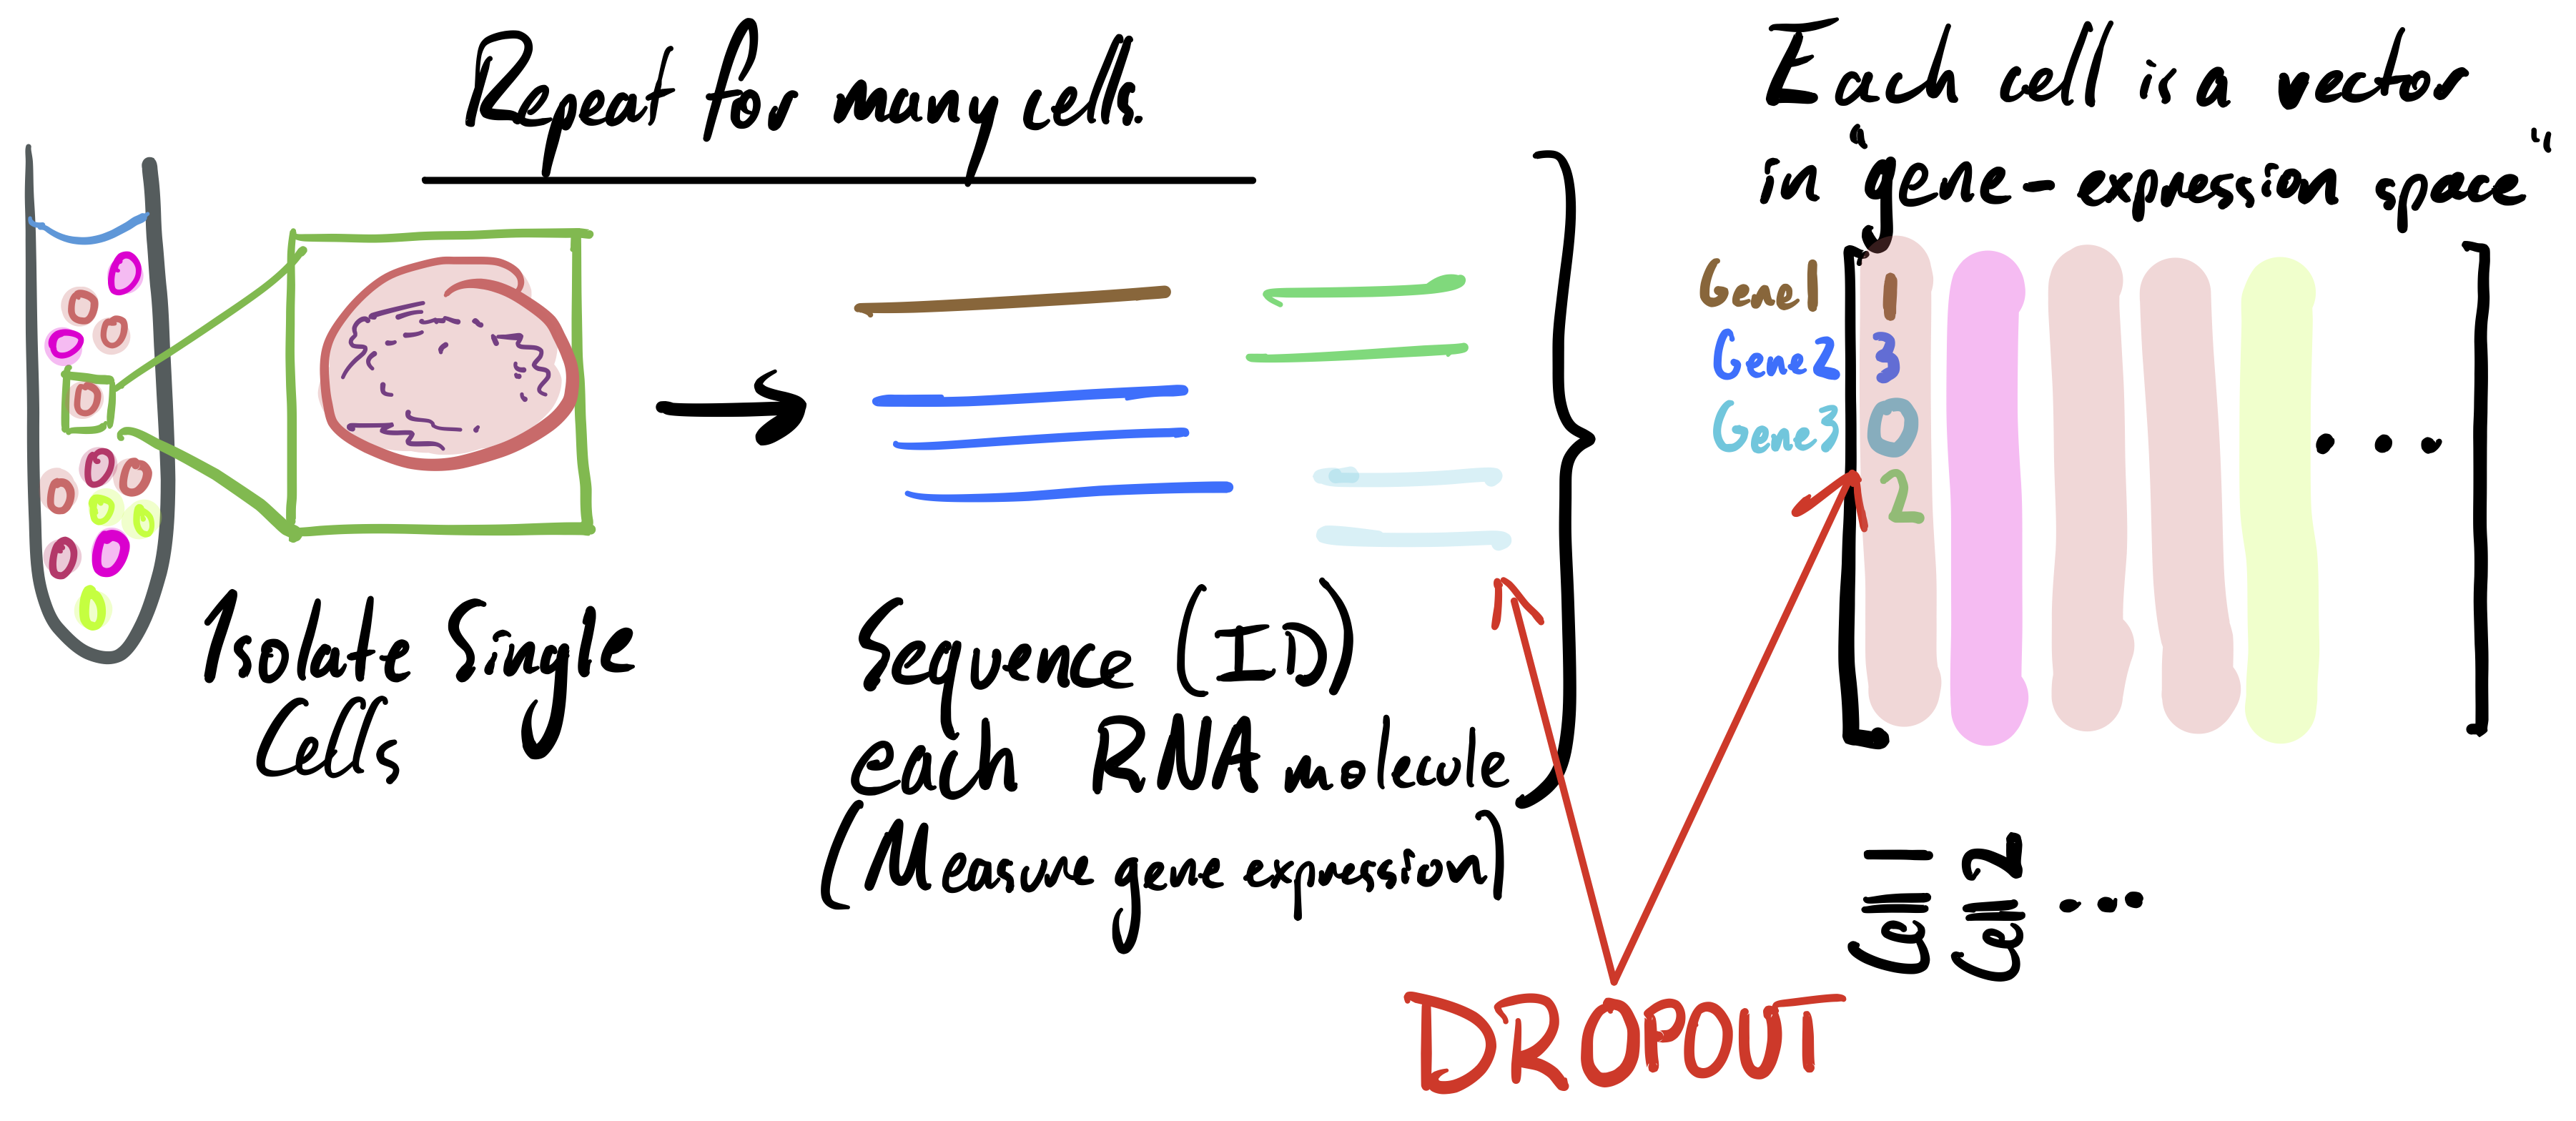 Repeat for many cells.
Isolate Single
Cells
Sequence (ID)
each RNA molecule
(Measure gene expression)
Each cell is a vector
in "gene-expression space"
Gene 1 1
Gene 2 3
Gene 3 0
2
...
Cell 1
Cell 2
...
DROPOUT